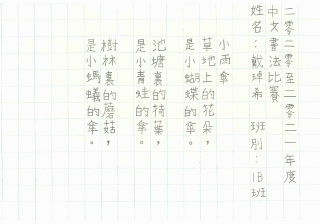 二零二零至二零二一年度
中文書法比賽
姓名：戴琸希 班別：1B班
小雨傘
草地上的花朵，
是小蝴蝶的傘。
池塘裏的荷葉，
是小青蛙的傘。
樹林裏的蘑菇，
是小螞蟻的傘。